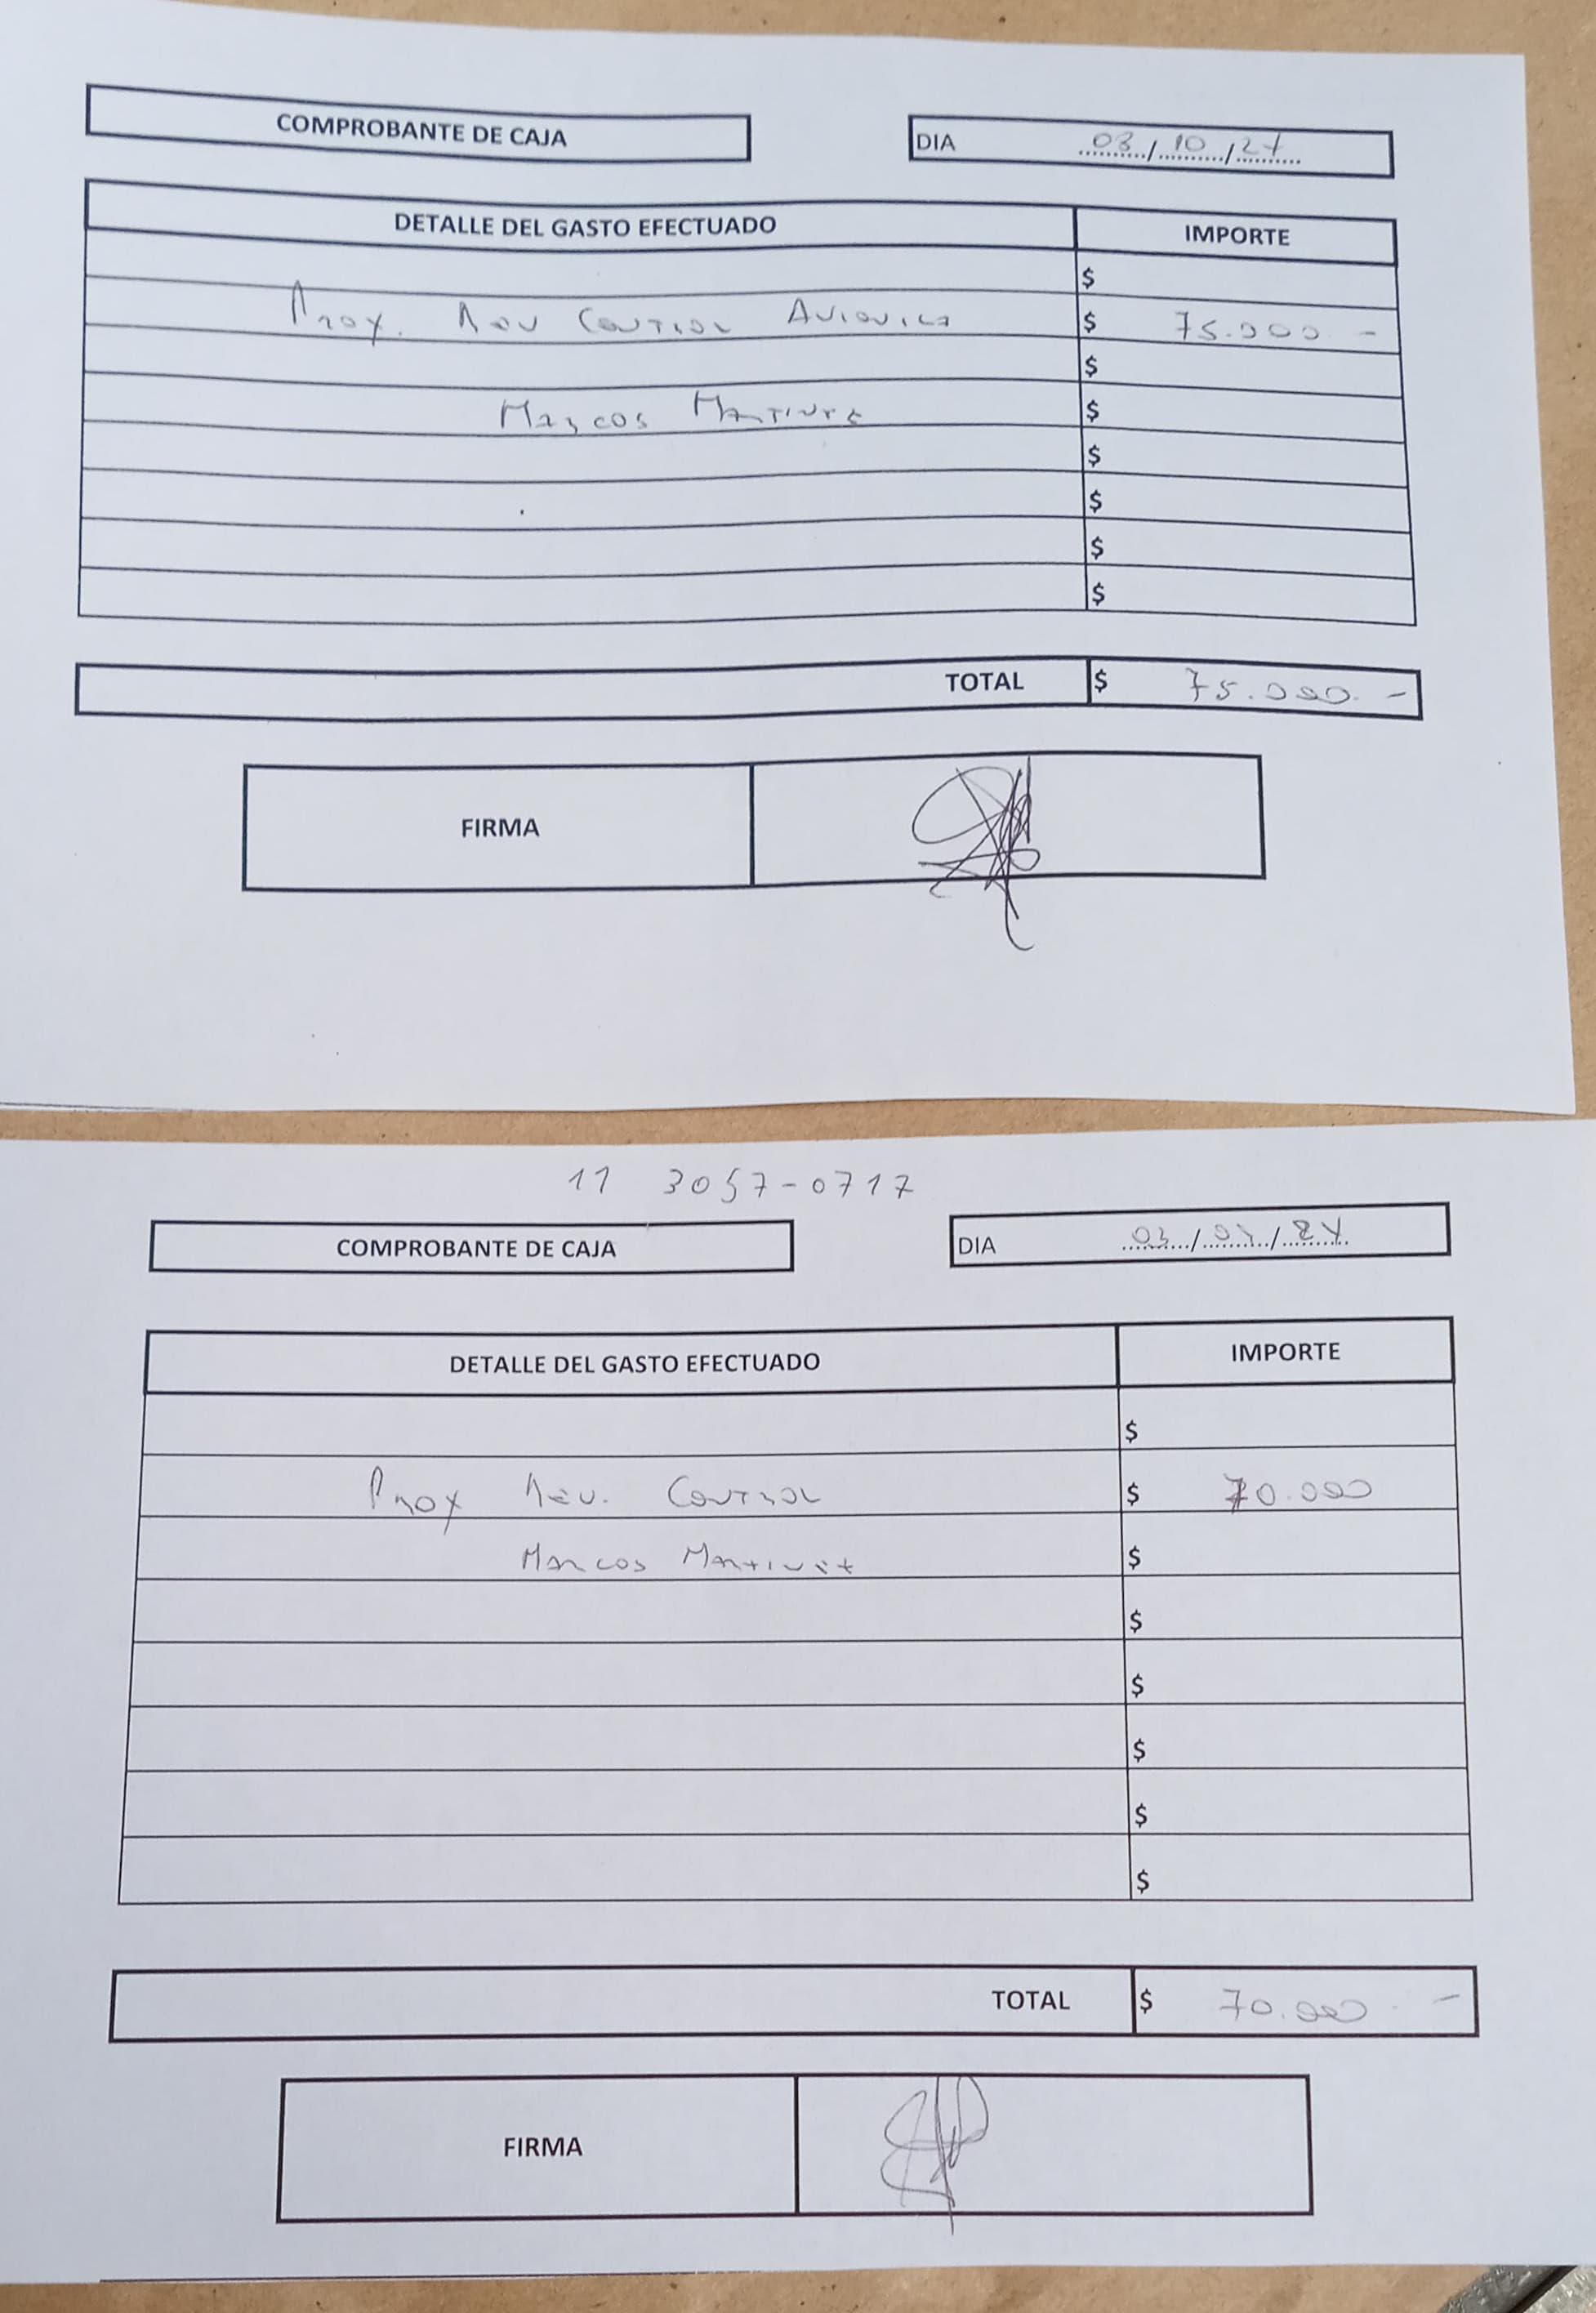 COMPROBANTE DE CAJA
DIA 03/10/24
DETALLE DEL GASTO EFECTUADO IMPORTE
$
Prox. Rev Control Avionica $ 75.000.-
$
Marcos Martinez $
$
$
$
$
TOTAL $ 75.000.-
FIRMA
11 3057-0717
COMPROBANTE DE CAJA
DIA 03/ /24
DETALLE DEL GASTO EFECTUADO IMPORTE
$
Prox Rev. Control $ 70.000
Marcos Martinez $
$
$
$
$
$
TOTAL $ 70.000.-
FIRMA